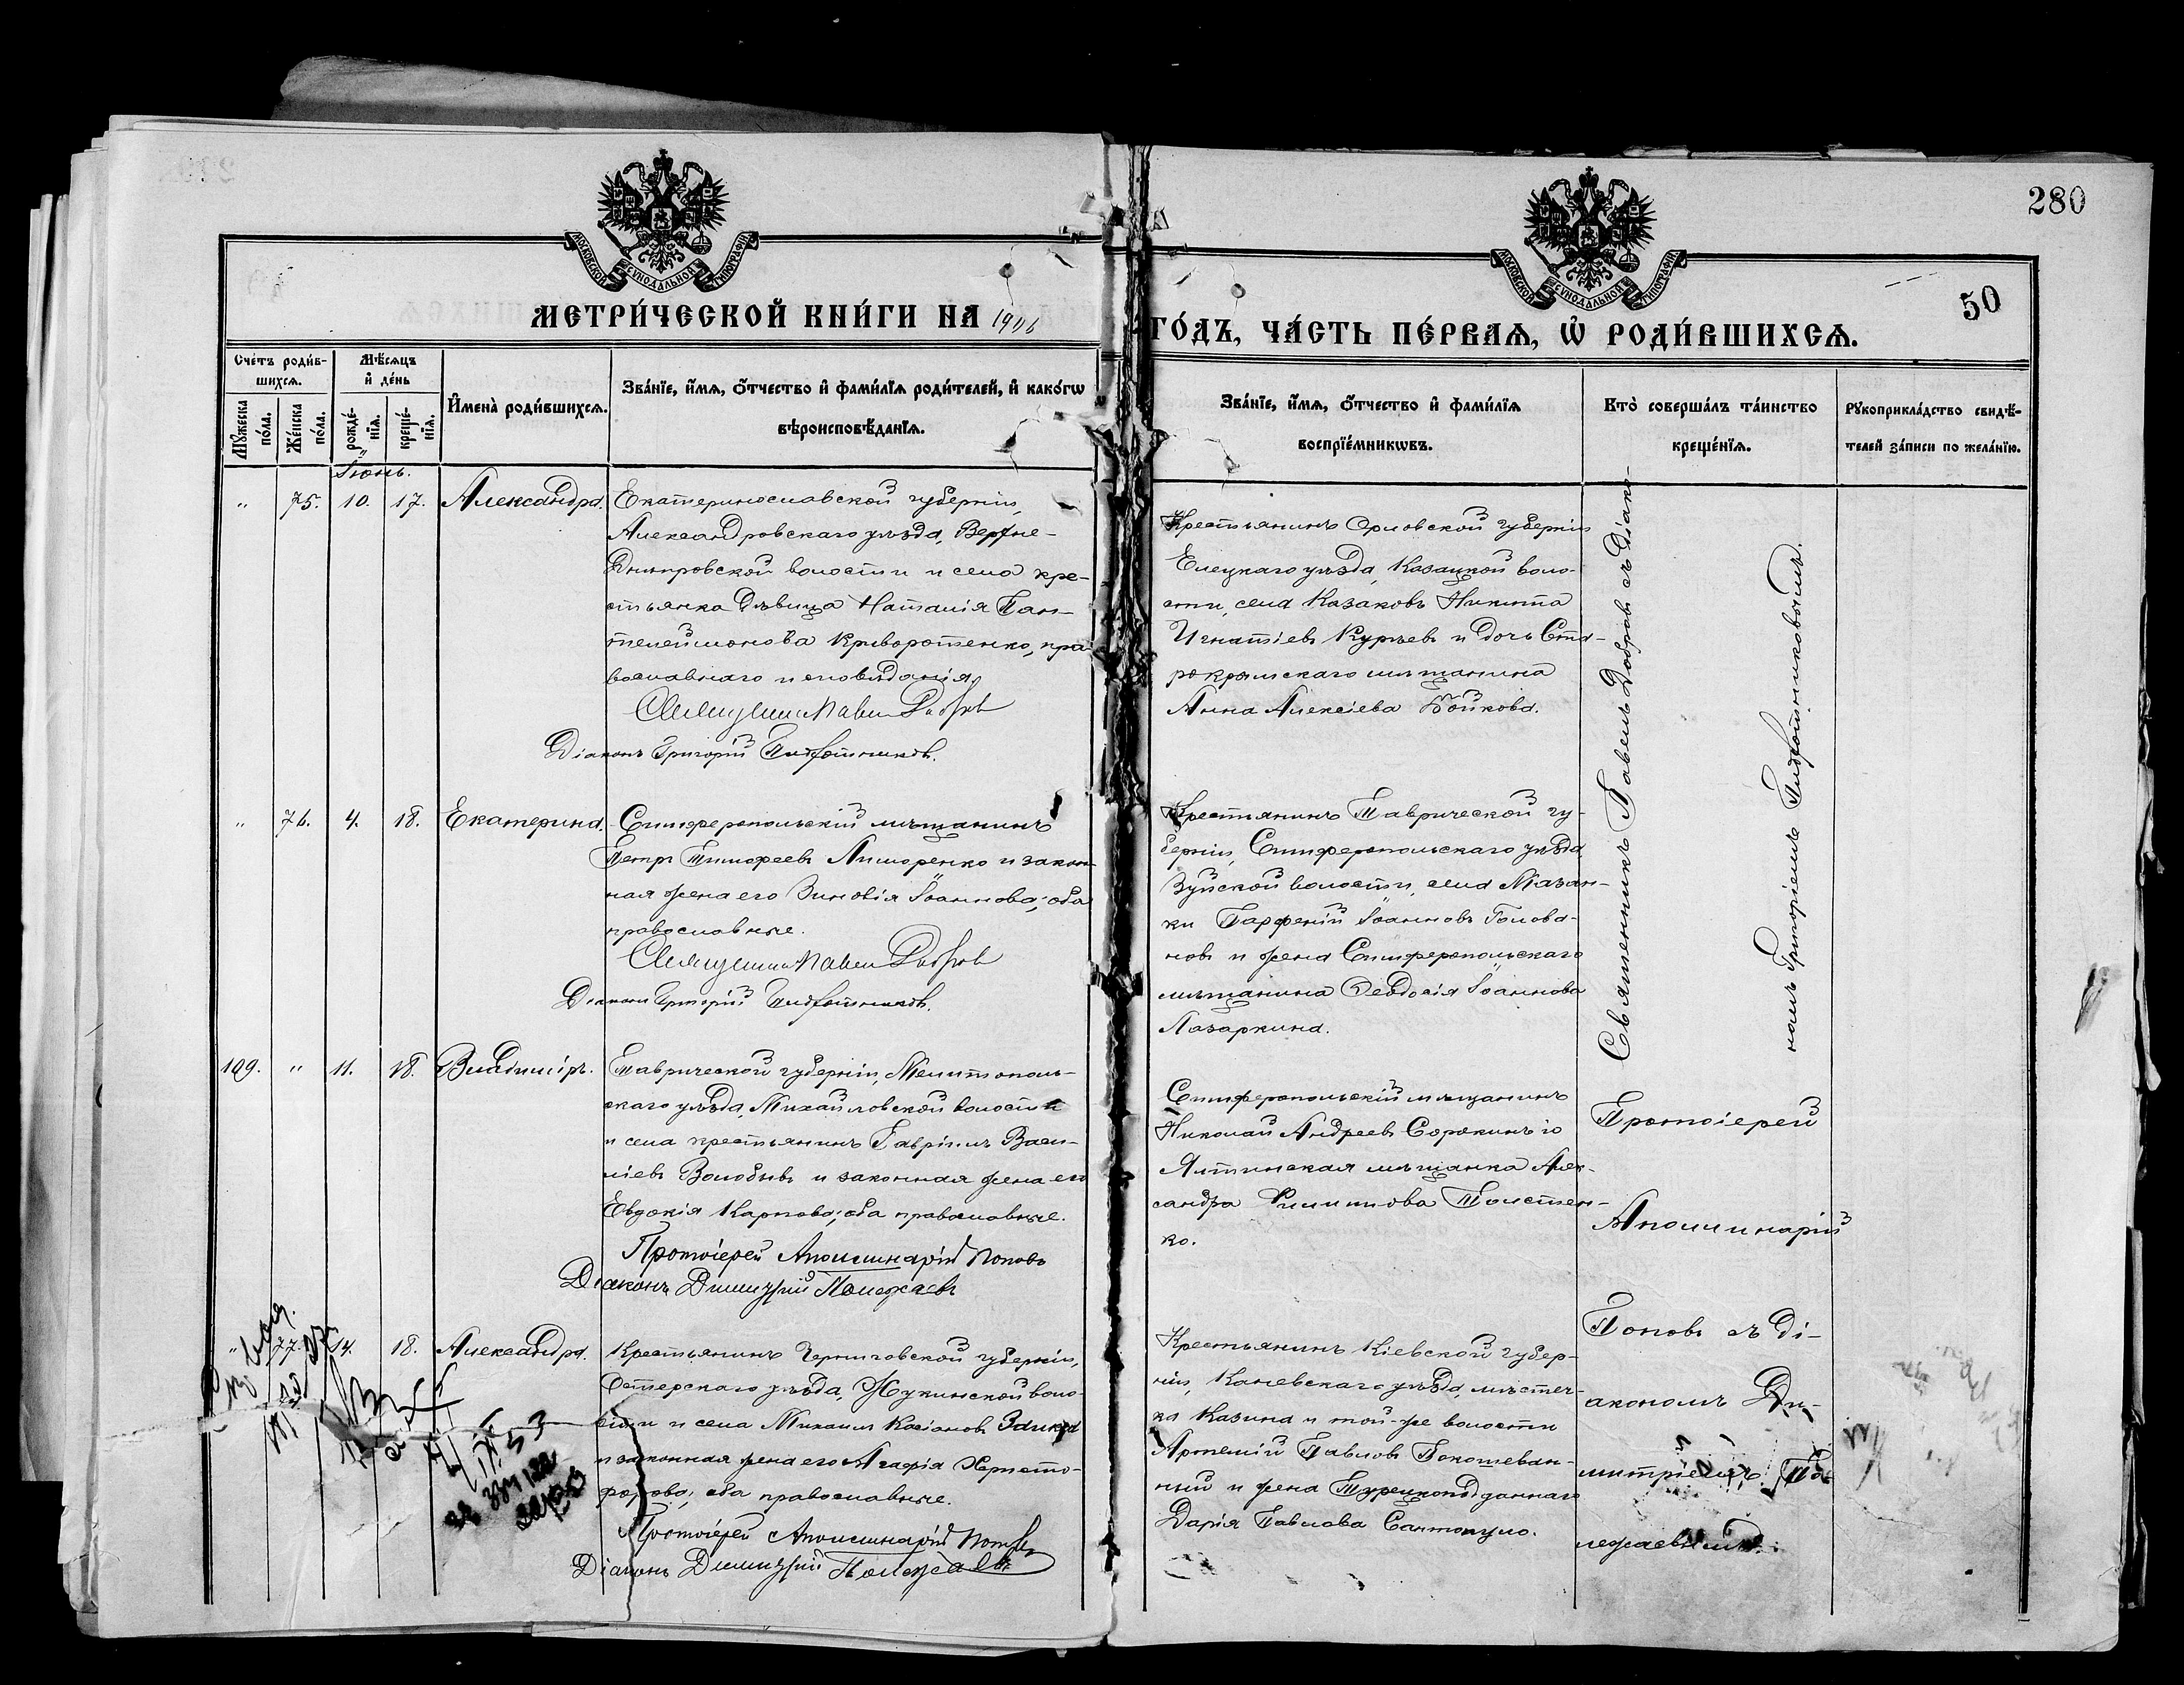 280
50
МОСКОВСКОЙ СѴНОДАЛЬНОЙ ТИПОГРАФІИ
МОСКОВСКОЙ СѴНОДАЛЬНОЙ ТИПОГРАФІИ
МЕТРИ́ЧЕСКОЙ КНИ́ГИ НА 1906
ГО́ДЪ, ЧА́СТЬ ПЕ́РВАѦ, Ѡ҆ РОДИ́ВШИХСѦ.
Сче́тъ роди́в-
шихсѧ.
Мꙋ́жеска по́ла.
Же́нска по́ла.
Мѣ́сѧцъ
и҆ де́нь
рожде́-нїѧ.
креще́-нїѧ.
И҆мена̀ роди́вшихсѧ.
Зва́нїе, и҆́мѧ, ѻ҆́тчество и҆ фами́лїѧ роди́телей, и҆ како́гѡ
вѣроисповѣ́данїѧ.
Зва́нїе, и҆́мѧ, ѻ҆́тчество и҆ фами́лїѧ
воспрїе́мникѡвъ.
Кто̀ соверша́лъ та́инство
креще́нїѧ.
Рꙋкоприкла́дство свидѣ́-
телей за́писи по жела́нїю.
Іюнь.
" 75. 10. 17. Александра.
Екатеринославской губерніи,
Александровскаго уѣзда, Верхне-
Днѣпровской волости и села кре-
стьянка дѣвица Наталія Пан-
телеймонова Криворотенко, пра-
вославнаго исповѣданія.
Священникъ Павелъ Добровъ
Діаконъ Григорій
Крестьянинъ Орловской губерніи
Елецкаго уѣзда, Казацкой воло-
сти, села Казаковъ Никита
Игнатіевъ Курьевъ и дочь Ста-
рокрымскаго мѣщанина
Анна Алексіева Бойкова.
Священникъ Павелъ Добровъ съ Діако-
номъ Григоріемъ
" 76. 4. 18. Екатерина.
Симферопольскій мѣщанинъ
Петръ Тимофеевъ Лиморенко и закон-
ная жена его Зиновія Іоаннова; оба
православные.
Священникъ Павелъ Добровъ
Діаконъ Григорій
Крестьянинъ Таврической гу-
берніи, Симферопольскаго уѣзда,
Зуйской волости, села Мазан-
ки Парфеній Іоанновъ Голова-
новъ и жена Симферопольскаго
мѣщанина Ѳеодосія Іоаннова
Лазаркина.
109. " 11. 18. Владиміръ.
Таврической губерніи, Мелитополь-
скаго уѣзда, Михайловской волости
и села крестьянинъ Гавріилъ Васи-
ліевъ Волобуевъ и законная жена его
Евдокія Карпова; оба православные.
Протоіерей Аполлинарій Поповъ
Діаконъ Димитрій Полежаевъ
Симферопольскій мѣщанинъ
Николай Андреевъ Сорокинъ и
Ялтинская мѣщанка Алек-
сандра Филиппова Толстен-
ко.
Протоіерей
Аполлинарій
Поповъ съ Ді-
акономъ Ди-
митріемъ По-
лежаевымъ.
" 77. 14. 18. Александра.
Крестьянинъ Черниговской губерніи,
Остерскаго уѣзда, Жукинской воло-
сти и села Михаилъ Касіановъ Заика
и законная жена его Агафія Христо-
форова; оба православные.
Протоіерей Аполлинарій Поповъ
Діаконъ Димитрій Полежаевъ
Крестьянинъ Кіевской губер-
ніи, Каневскаго уѣзда, мѣстеч-
ка Казина и той-же волости
Артемій Павловъ Покотеван-
ный и жена Турецкоподданнаго
Дарія Павлова Сантопуло.